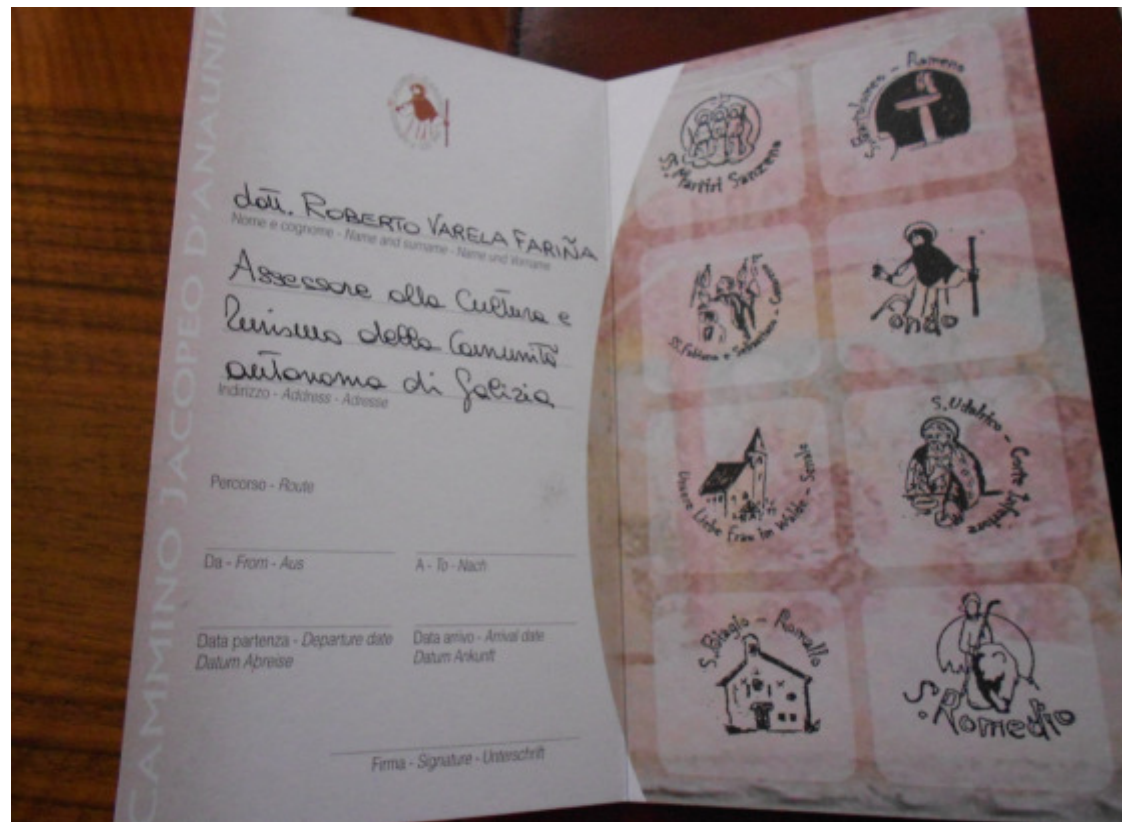 CAMMINO JACOPEO D'ANAUNIA
dott. ROBERTO VARELA FARIÑA
Nome e cognome - Name and surname - Name und Vorname
Assessore alla Cultura e
Turismo della Comunità
autonoma di Galizia
Indirizzo - Address - Adresse
Percorso - Route
Da - From - Aus
A - To - Nach
Data partenza - Departure date
Datum Abreise
Data arrivo - Arrival date
Datum Ankunft
Firma - Signature - Unterschrift
SS. Martiri Sanzeno
S. Bartolomeo - Romeno
SS. Fabiano e Sebastiano -
Fondo
Unsere Liebe Frau im Walde - Senale
S. Udalrico - Corte Inferiore
S. Biagio - Romallo
S. Romedio